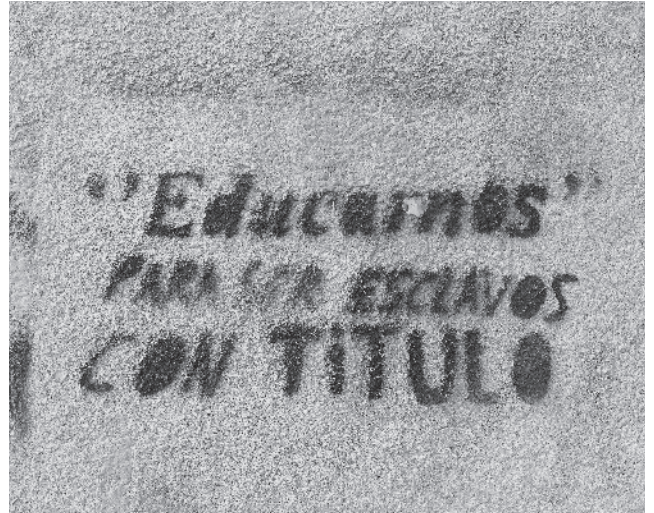 "Educarnos"
PARA SER ESCLAVOS
CON TITULO